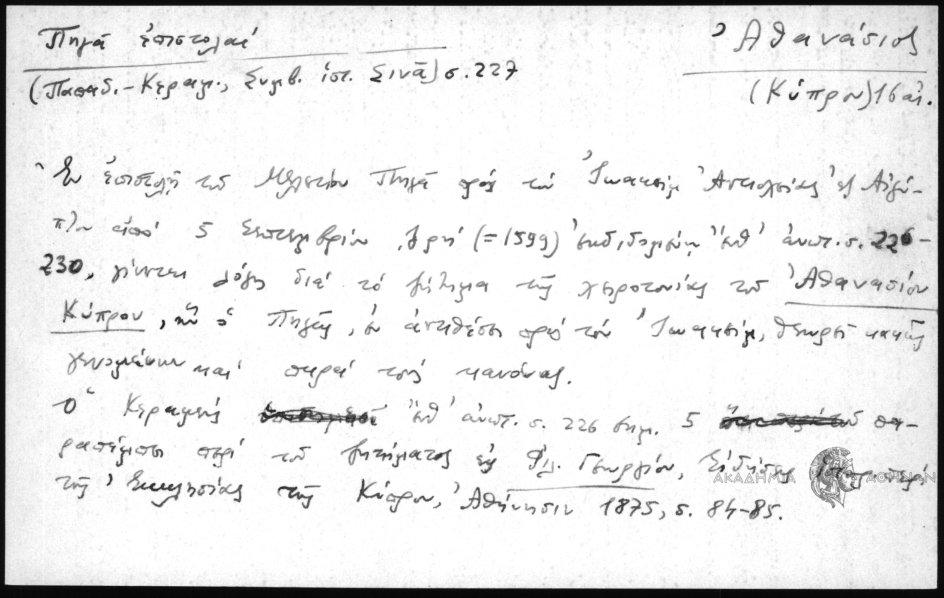 Πηγᾶ ἐπιστολαί
Ἀθανάσιος
(Παπαδ.-Κεραμ., Συμβ. ἱστ. Σινᾶ) σ. 227
(Κύπρου) 16 αἰ.
Ἐν ἐπιστολῇ τοῦ Μελετίου Πηγᾶ πρὸς τὸν Ἰωακεὶμ Ἀντιοχείας ἐξ Αἰγύ-
πτου ἀπὸ 5 Σεπτεμβρίου (=1599) ἐκδιδομένῃ ἔνθ' ἀνωτ. σ. 226-
230, γίνεται λόγος διὰ τὸ ζήτημα τῆς χειροτονίας τοῦ Ἀθανασίου
Κύπρου, ἣν ὁ Πηγᾶς, ἐν ἀντιθέσει πρὸς τὸν Ἰωακείμ, θεωρεῖ κακῶς
γενομένην καὶ παρὰ τοὺς κανόνας.
Ὁ Κεραμεὺς ἔνθ' ἀνωτ. σ. 226 σημ. 5 πα-
ραπέμπει περὶ τοῦ ζητήματος εἰς Φιλ. Γεωργίου, Εἰδήσεις
τῆς Ἐκκλησίας τῆς Κύπρου, Ἀθήνησιν 1875, σ. 84-85.
ΑΚΑΔΗΜΙΑ ΑΘΗΝΩΝ